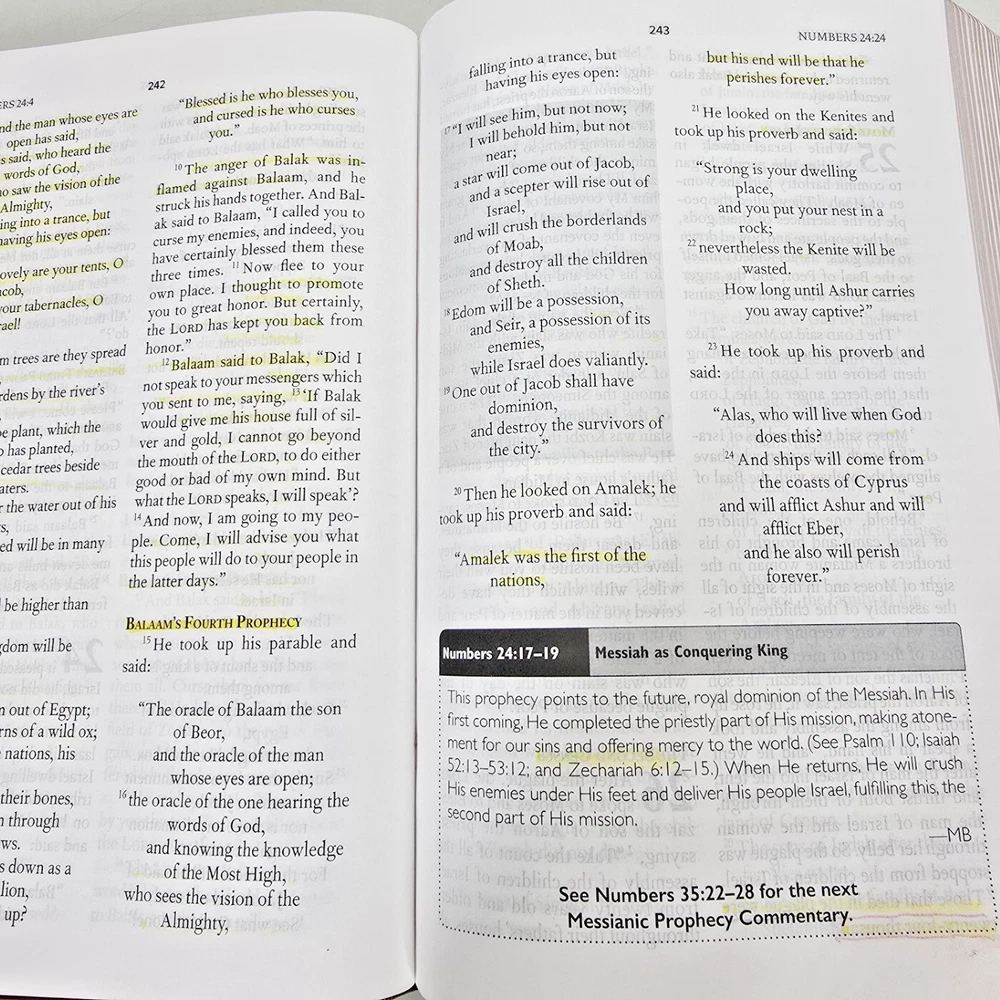 242
ERS 24:4
nd the man whose eyes are
open has said,
s said, who heard the
words of God,
o saw the vision of the
Almighty,
ing into a trance, but
having his eyes open:
ovely are your tents, O
cob,
your tabernacles, O
rael!
m trees are they spread
rdens by the river's
e plant, which the
has planted,
cedar trees beside
aters.
r the water out of his
s,
ed will be in many
be higher than
gdom will be
n out of Egypt;
rns of a wild ox;
nations, his
their bones,
n through
ws.
s down as a
lion,
up?
“Blessed is he who blesses you,
and cursed is he who curses
you.”
10 The anger of Balak was in-
flamed against Balaam, and he
struck his hands together. And Bal-
ak said to Balaam, “I called you to
curse my enemies, and indeed, you
have certainly blessed them these
three times. 11 Now flee to your
own place. I thought to promote
you to great honor. But certainly,
the LORD has kept you back from
honor.”
12 Balaam said to Balak, “Did I
not speak to your messengers which
you sent to me, saying, 13 ‘If Balak
would give me his house full of sil-
ver and gold, I cannot go beyond
the mouth of the LORD, to do either
good or bad of my own mind. But
what the LORD speaks, I will speak’?
14 And now, I am going to my peo-
ple. Come, I will advise you what
this people will do to your people in
the latter days.”
BALAAM’S FOURTH PROPHECY
15 He took up his parable and
said:
“The oracle of Balaam the son
of Beor,
and the oracle of the man
whose eyes are open;
16 the oracle of the one hearing the
words of God,
and knowing the knowledge
of the Most High,
who sees the vision of the
Almighty,
243
NUMBERS 24:24
falling into a trance, but
having his eyes open:
17 “I will see him, but not now;
I will behold him, but not
near;
a star will come out of Jacob,
and a scepter will rise out of
Israel,
and will crush the borderlands
of Moab,
and destroy all the children
of Sheth.
18 Edom will be a possession,
and Seir, a possession of its
enemies,
while Israel does valiantly.
19 One out of Jacob shall have
dominion,
and destroy the survivors of
the city.”
20 Then he looked on Amalek; he
took up his proverb and said:
“Amalek was the first of the
nations,
but his end will be that he
perishes forever.”
21 He looked on the Kenites and
took up his proverb and said:
“Strong is your dwelling
place,
and you put your nest in a
rock;
22 nevertheless the Kenite will be
wasted.
How long until Ashur carries
you away captive?”
23 He took up his proverb and
said:
“Alas, who will live when God
does this?
24 And ships will come from
the coasts of Cyprus
and will afflict Ashur and will
afflict Eber,
and he also will perish
forever.”
Numbers 24:17–19
Messiah as Conquering King
This prophecy points to the future, royal dominion of the Messiah. In His
first coming, He completed the priestly part of His mission, making atone-
ment for our sins and offering mercy to the world. (See Psalm 110; Isaiah
52:13–53:12; and Zechariah 6:12–15.) When He returns, He will crush
His enemies under His feet and deliver His people Israel, fulfilling this, the
second part of His mission.
—MB
See Numbers 35:22–28 for the next
Messianic Prophecy Commentary.